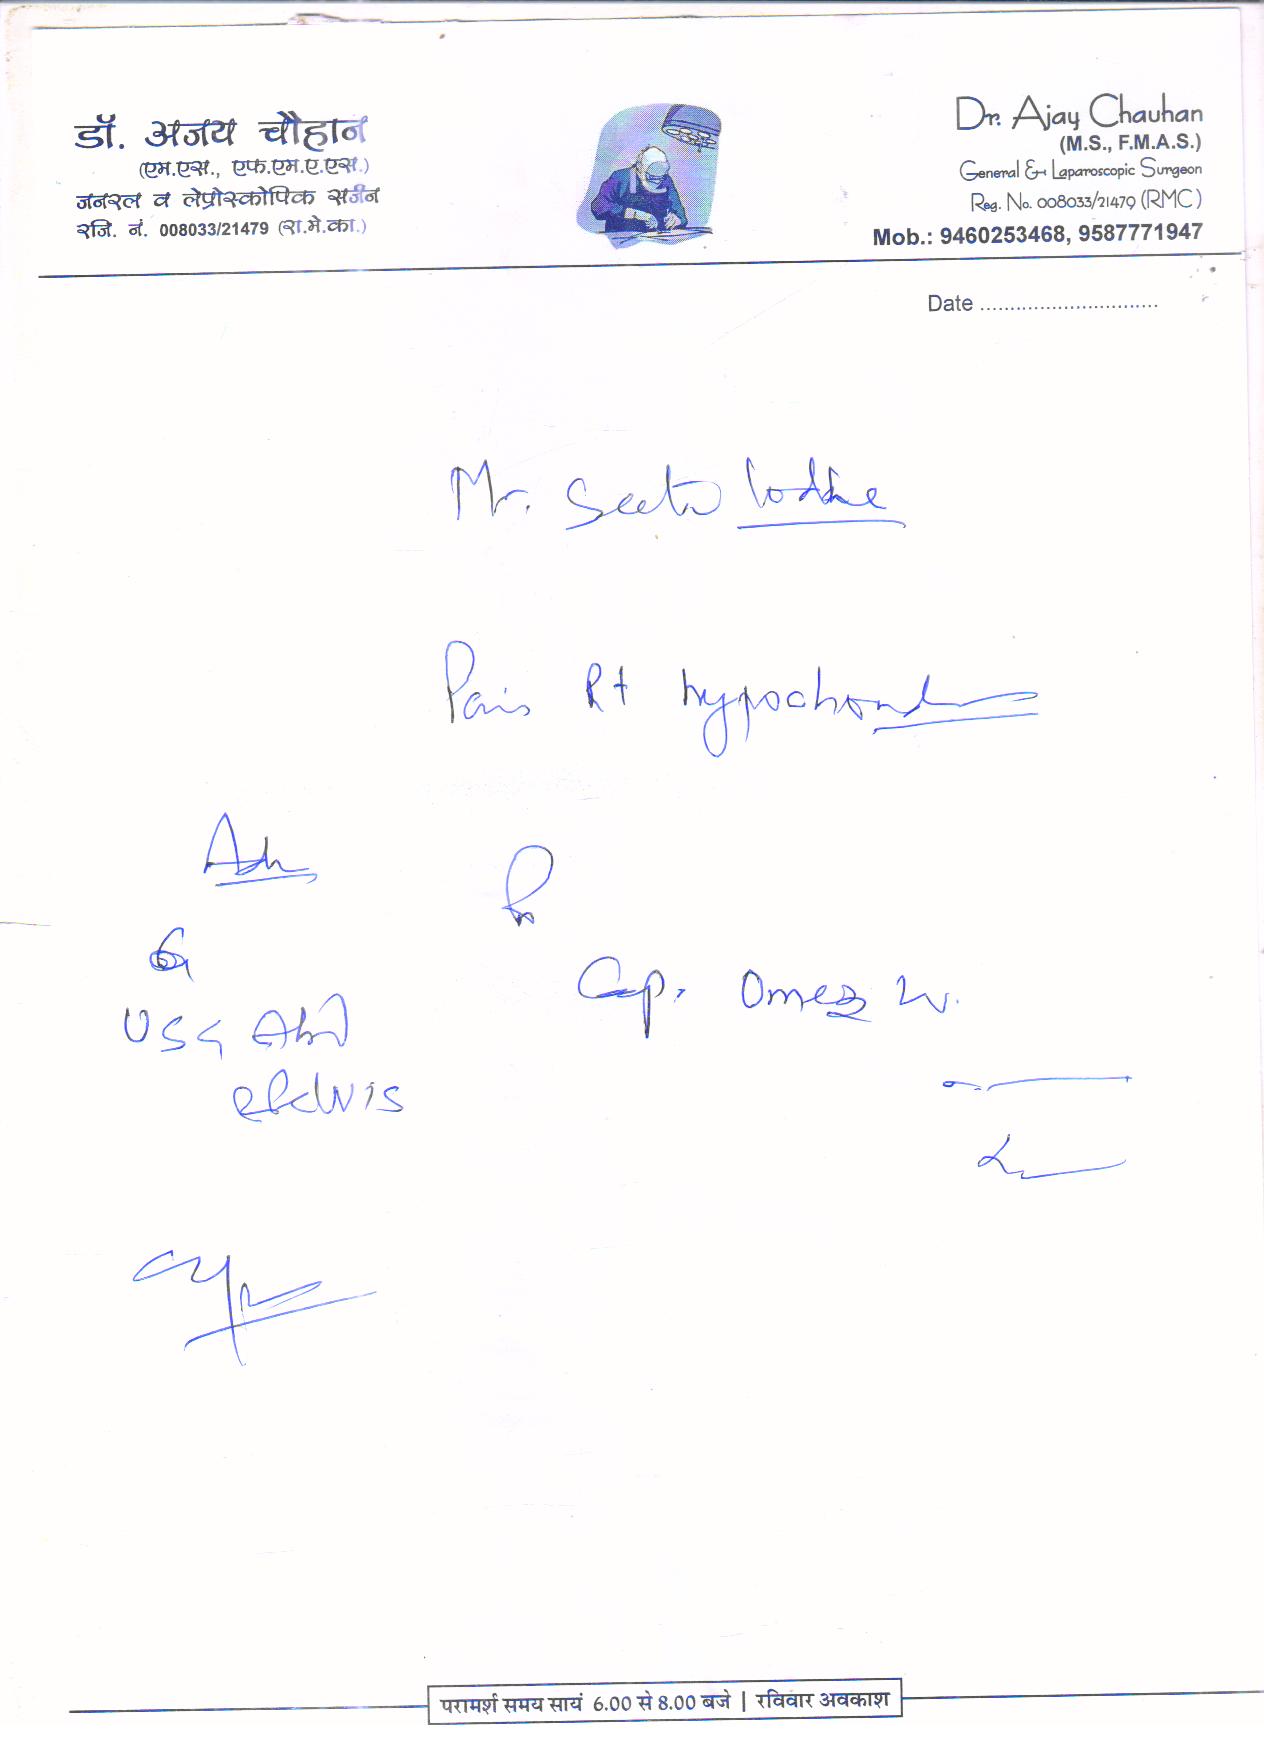 डॉ. अजय चौहान
(एम.एस., एफ.एम.ए.एस.)
जनरल व लेप्रोस्कोपिक सर्जन
रजि. नं. 008033/21479 (रा.मे.का.)
Dr. Ajay Chauhan
(M.S., F.M.A.S.)
General & Laparoscopic Surgeon
Reg. No. 008033/21479 (RMC)
Mob.: 9460253468, 9587771947
Date ..............................
Mr. Seeta lodhe
Pain Rt hypochond
Adv
USG Abd
Cap. Omez
परामर्श समय सायं 6.00 से 8.00 बजे | रविवार अवकाश